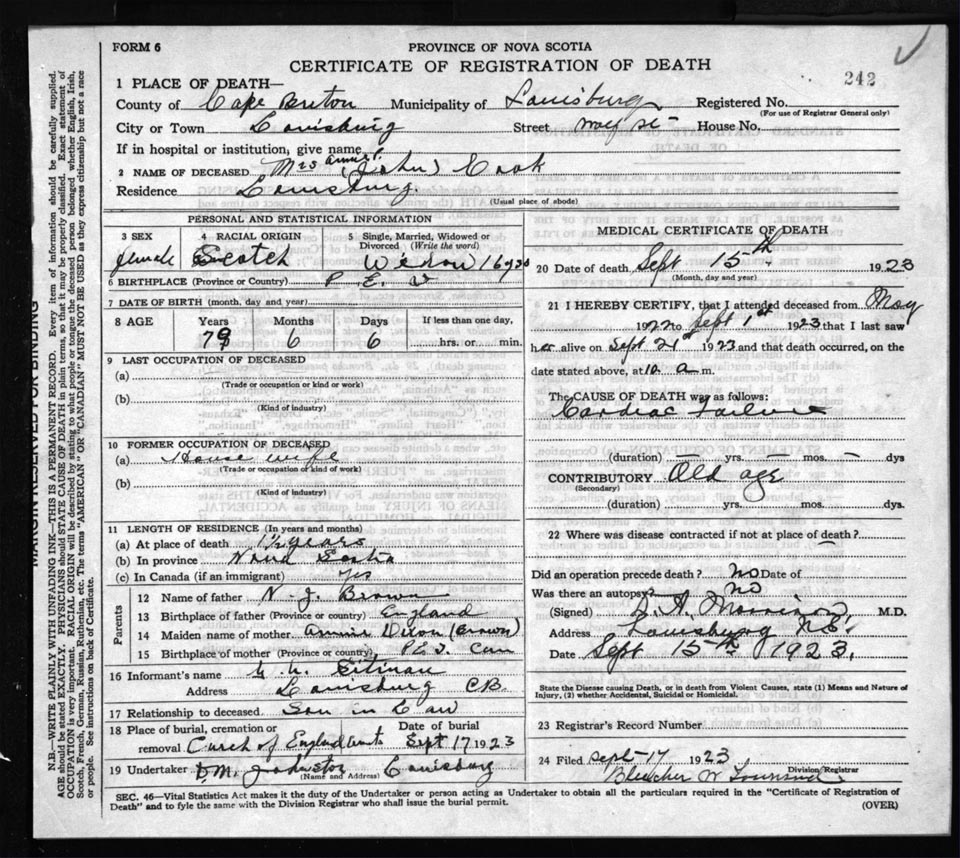 FORM 6
PROVINCE OF NOVA SCOTIA
CERTIFICATE OF REGISTRATION OF DEATH
242
1 PLACE OF DEATH—
County of Cape Breton Municipality of Louisburg Registered No.
(For use of Registrar General only)
City or Town Louisburg Street House No.
If in hospital or institution, give name
2 NAME OF DECEASED. Mrs Annie (John) Cook
Residence Louisburg.
(Usual place of abode)
PERSONAL AND STATISTICAL INFORMATION
3 SEX 4 RACIAL ORIGIN 5 Single, Married, Widowed or Divorced (Write the word)
female Scotch 16 yrs
6 BIRTHPLACE (Province or Country) P. E. I
7 DATE OF BIRTH (month, day and year)
8 AGE Years Months Days If less than one day,
79 6 6 hrs. or min.
9 LAST OCCUPATION OF DECEASED
(a)
(Trade or occupation or kind or work)
(b)
(Kind of industry)
10 FORMER OCCUPATION OF DECEASED
(a) House wife
(Trade or occupation or kind of work)
(b)
(Kind of industry)
11 LENGTH OF RESIDENCE (In years and months)
(a) At place of death 1½ years
(b) In province Nova Scotia
(c) In Canada (if an immigrant) yes
Parents
12 Name of father N. J. Brown
13 Birthplace of father (Province or country) England
14 Maiden name of mother. Annie Dixon (Brown)
15 Birthplace of mother (Province or country) P.E.I. Can
16 Informant's name
Address Louisburg C.B.
17 Relationship to deceased. Son in Law
18 Place of burial, cremation or removal Curch of England Date of burial Sept 17 1923
19 Undertaker D. M. Johnston Louisburg
(Name and Address)
MEDICAL CERTIFICATE OF DEATH
20 Date of death Sept 15th 1923
(Month, day and year)
21 I HEREBY CERTIFY, that I attended deceased from May
1922 to Sept 1st 1923 that I last saw
her alive on Sept 1923 and that death occurred, on
date stated above, at 10 a m.
The CAUSE OF DEATH was as follows:
Cardiac Failure
(duration) yrs. mos. dys
CONTRIBUTORY Old age
(Secondary)
(duration) yrs. mos. dys.
22 Where was disease contracted if not at place of death?
Did an operation precede death? No Date of
Was there an autopsy? No
(Signed) Morrison M.D.
Address Louisburg N.S.
Date Sept 15th 1923.
State the Disease causing Death, or in death from Violent Causes, state (1) Means and Nature of Injury, (2) whether Accidental, Suicidal or Homicidal.
23 Registrar's Record Number
24 Filed Sept 17 1923
Division Registrar
SEC. 46—Vital Statistics Act makes it the duty of the Undertaker or person acting as Undertaker to obtain all the particulars required in the "Certificate of Registration of
Death" and to fyle the same with the Division Registrar who shall issue the burial permit.
(OVER)
MARGIN RESERVED FOR BINDING
N.B.—WRITE PLAINLY WITH UNFADING INK—THIS IS A PERMANENT RECORD. Every item of information should be carefully supplied.
AGE should be stated EXACTLY. PHYSICIANS should STATE CAUSE OF DEATH in plain terms, so that it may be properly classified. Exact statement of
OCCUPATION is very important. RACIAL ORIGIN will be described by stating to what people or tongue the deceased person belonged, whether English, Irish,
Scotch, French, German, Russian, Ruthenian, etc. The terms "AMERICAN" OR "CANADIAN" MUST NOT BE USED as they express citizenship but not a race
or people. See instructions on back of Certificate.